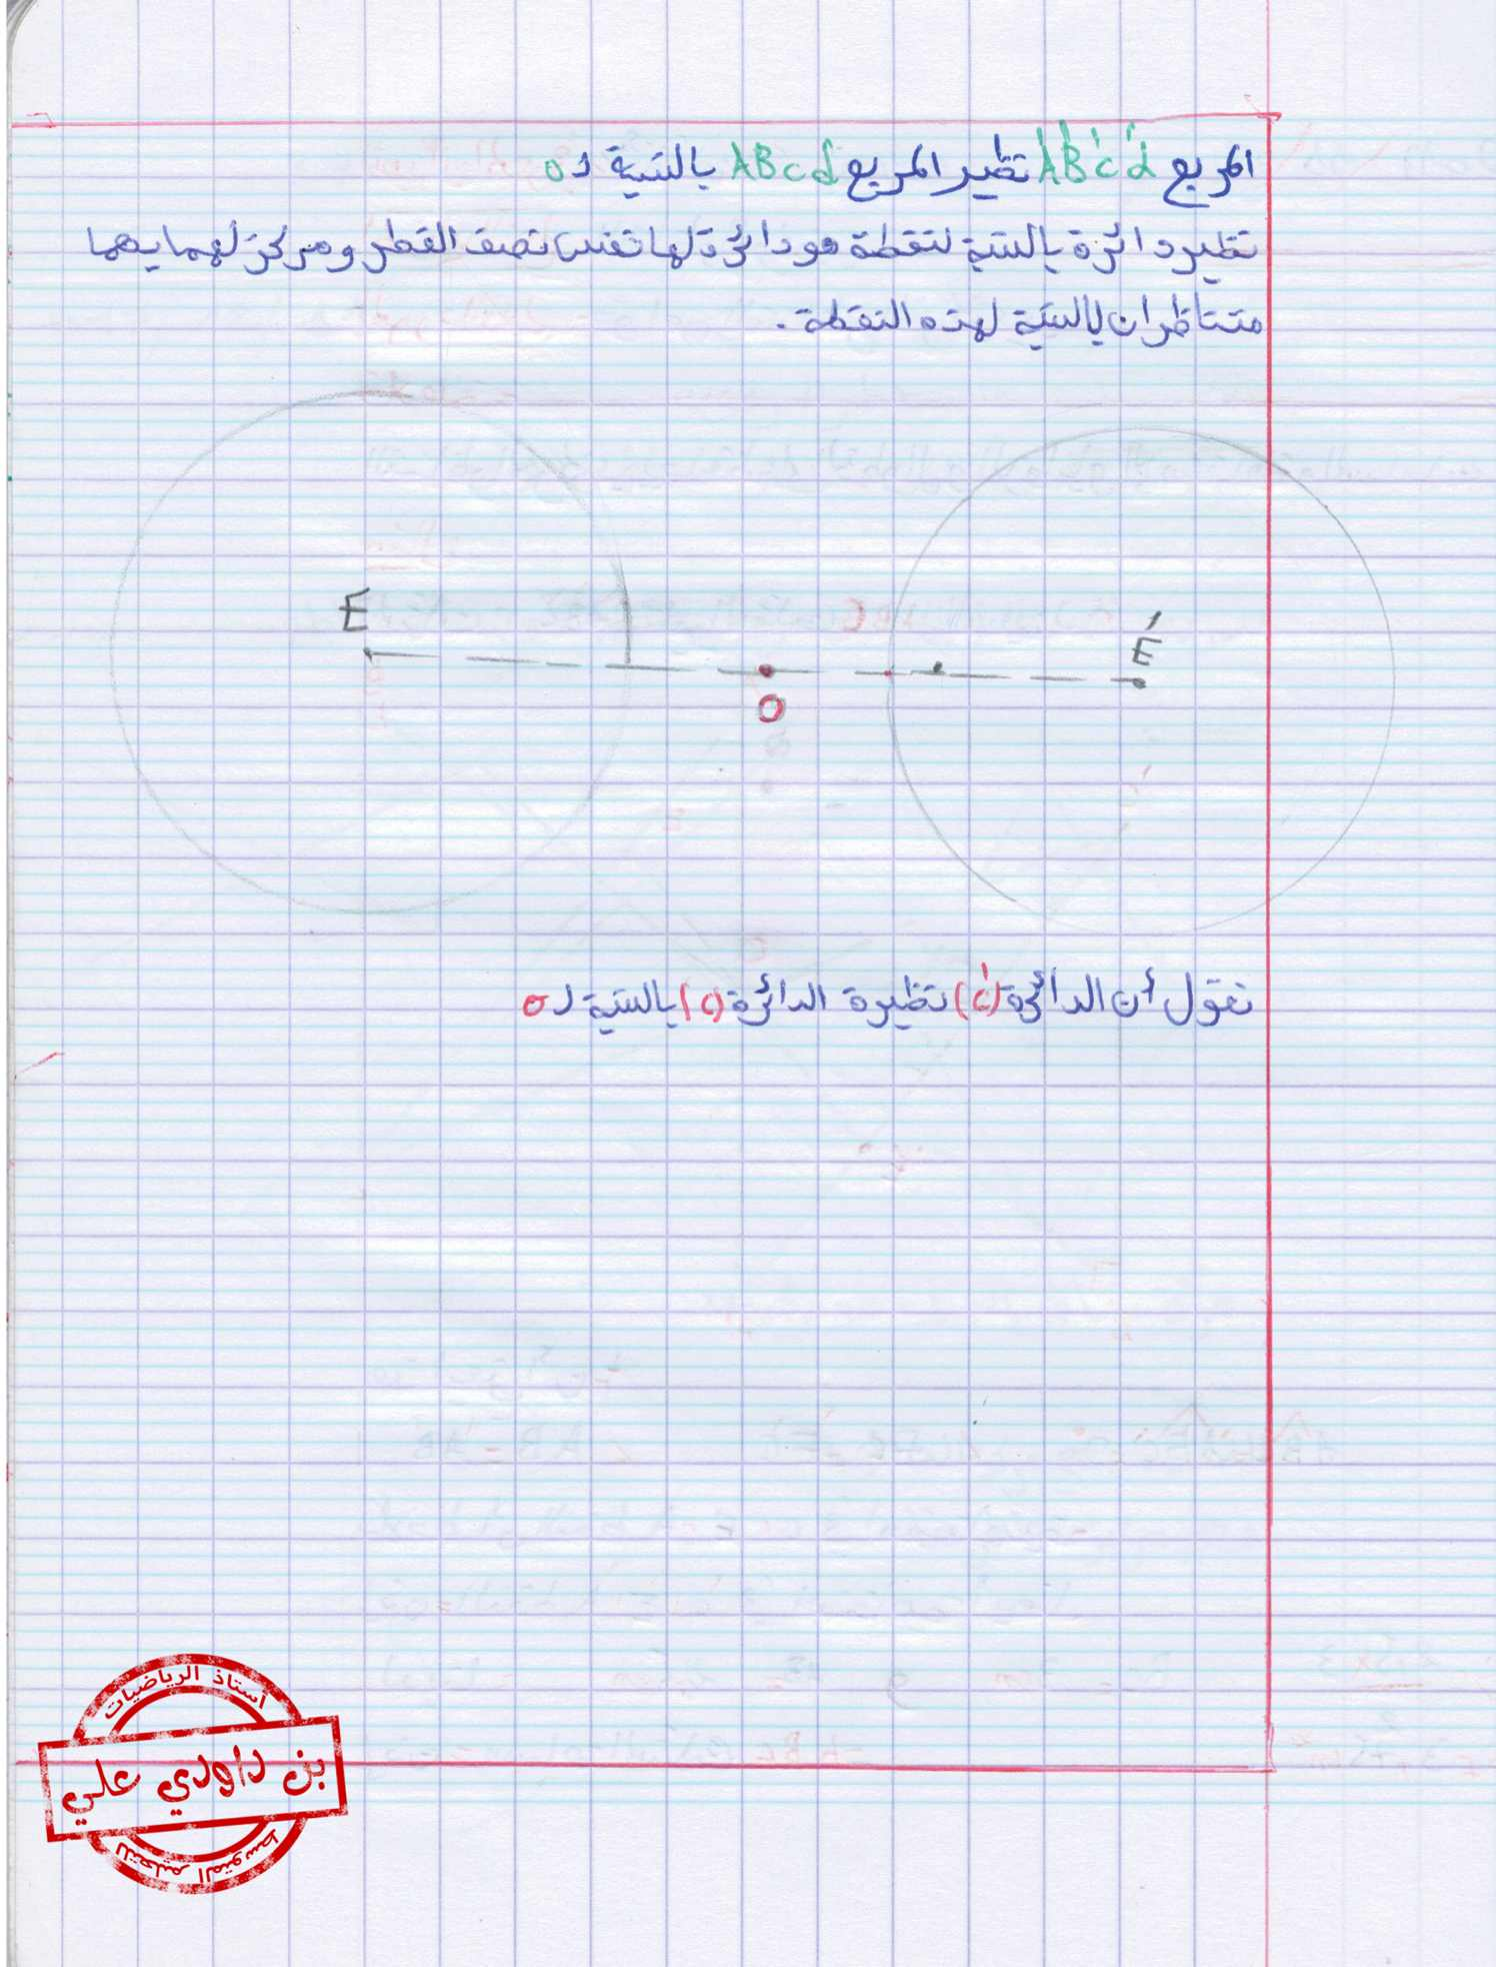 المربع A'B'c'd' نظير المربع ABcd بالنسبة لـ o
نظير دائرة بالنسبة لنقطة هو دائرة لها نفس نصف القطر ومركز لهما يهما
متناظران بالنسبة لهذه النقطة.
E
E'
O
نقول أن الدائرة (c') نظيرة الدائرة (c) بالنسبة لـ o
أستاذ الرياضيات
بن داودي علي
للتعليم المتوسط